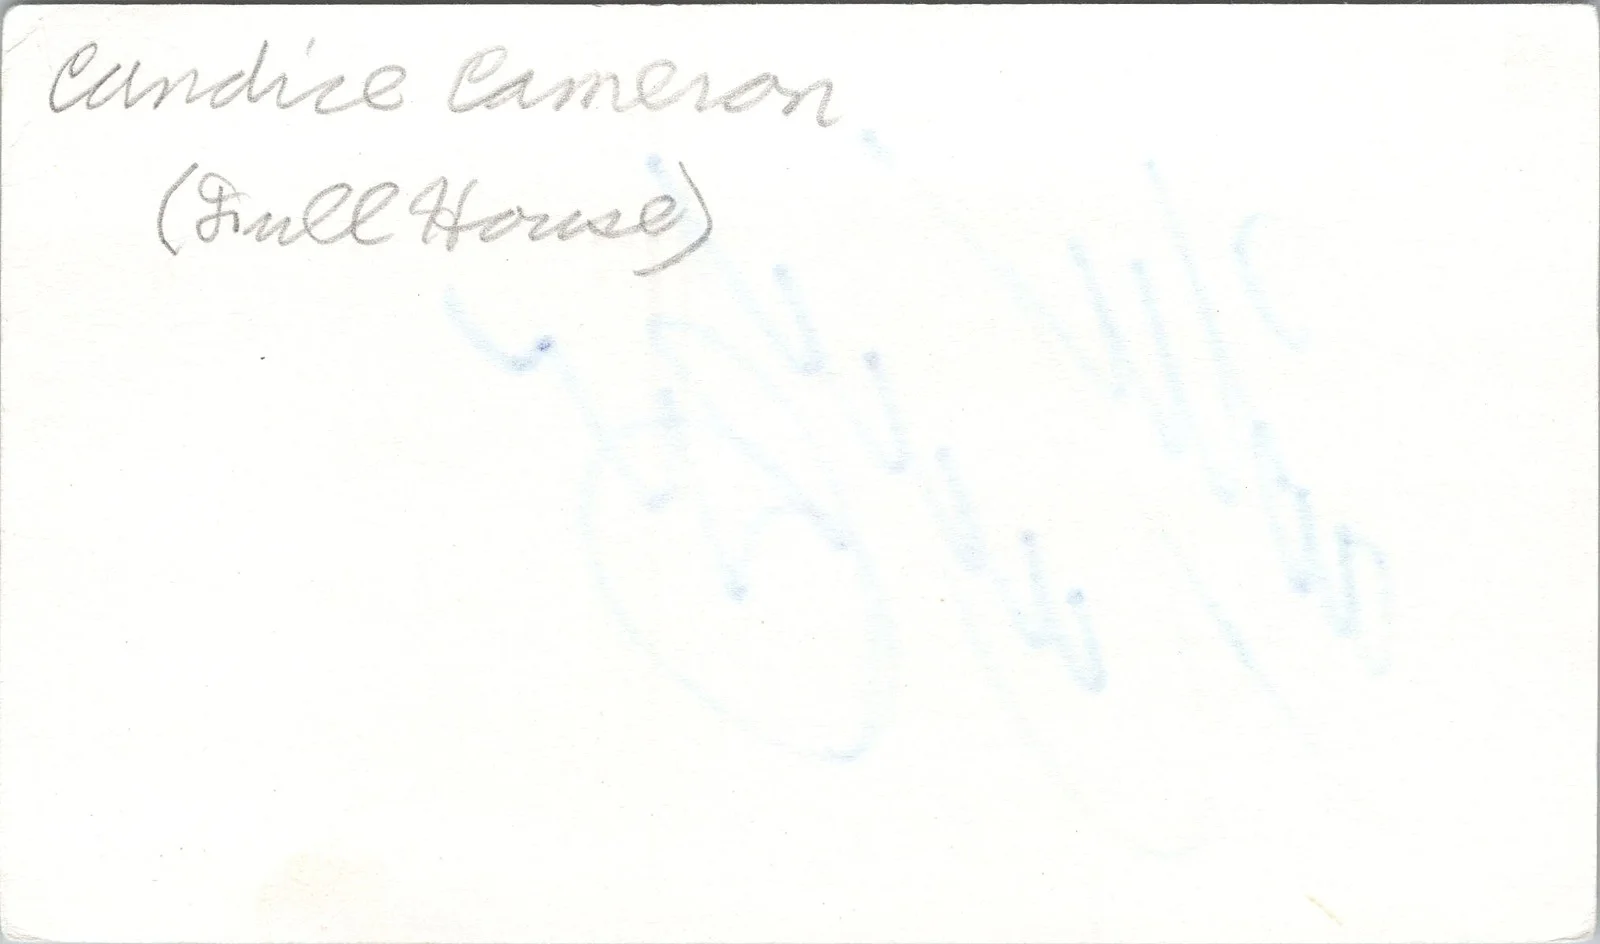 Candice Cameron
(Full House)